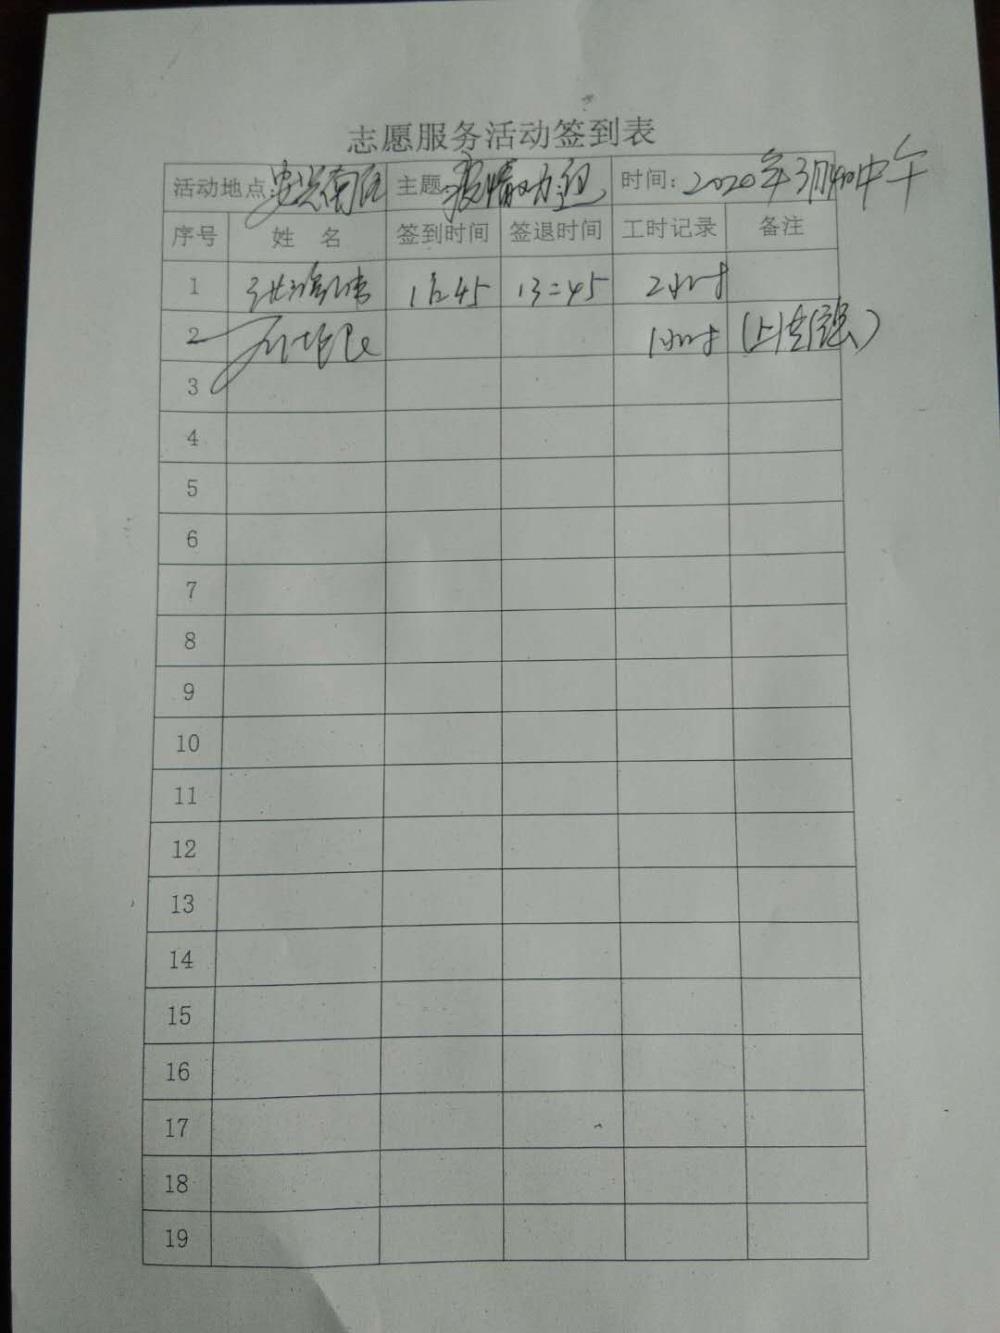 志愿服务活动签到表
活动地点:安兴南区 主题:疫情 时间:2020年3月4日中午
序号 姓名 签到时间 签退时间 工时记录 备注
1 11:45 13:45 2小时
2 1小时
3
4
5
6
7
8
9
10
11
12
13
14
15
16
17
18
19